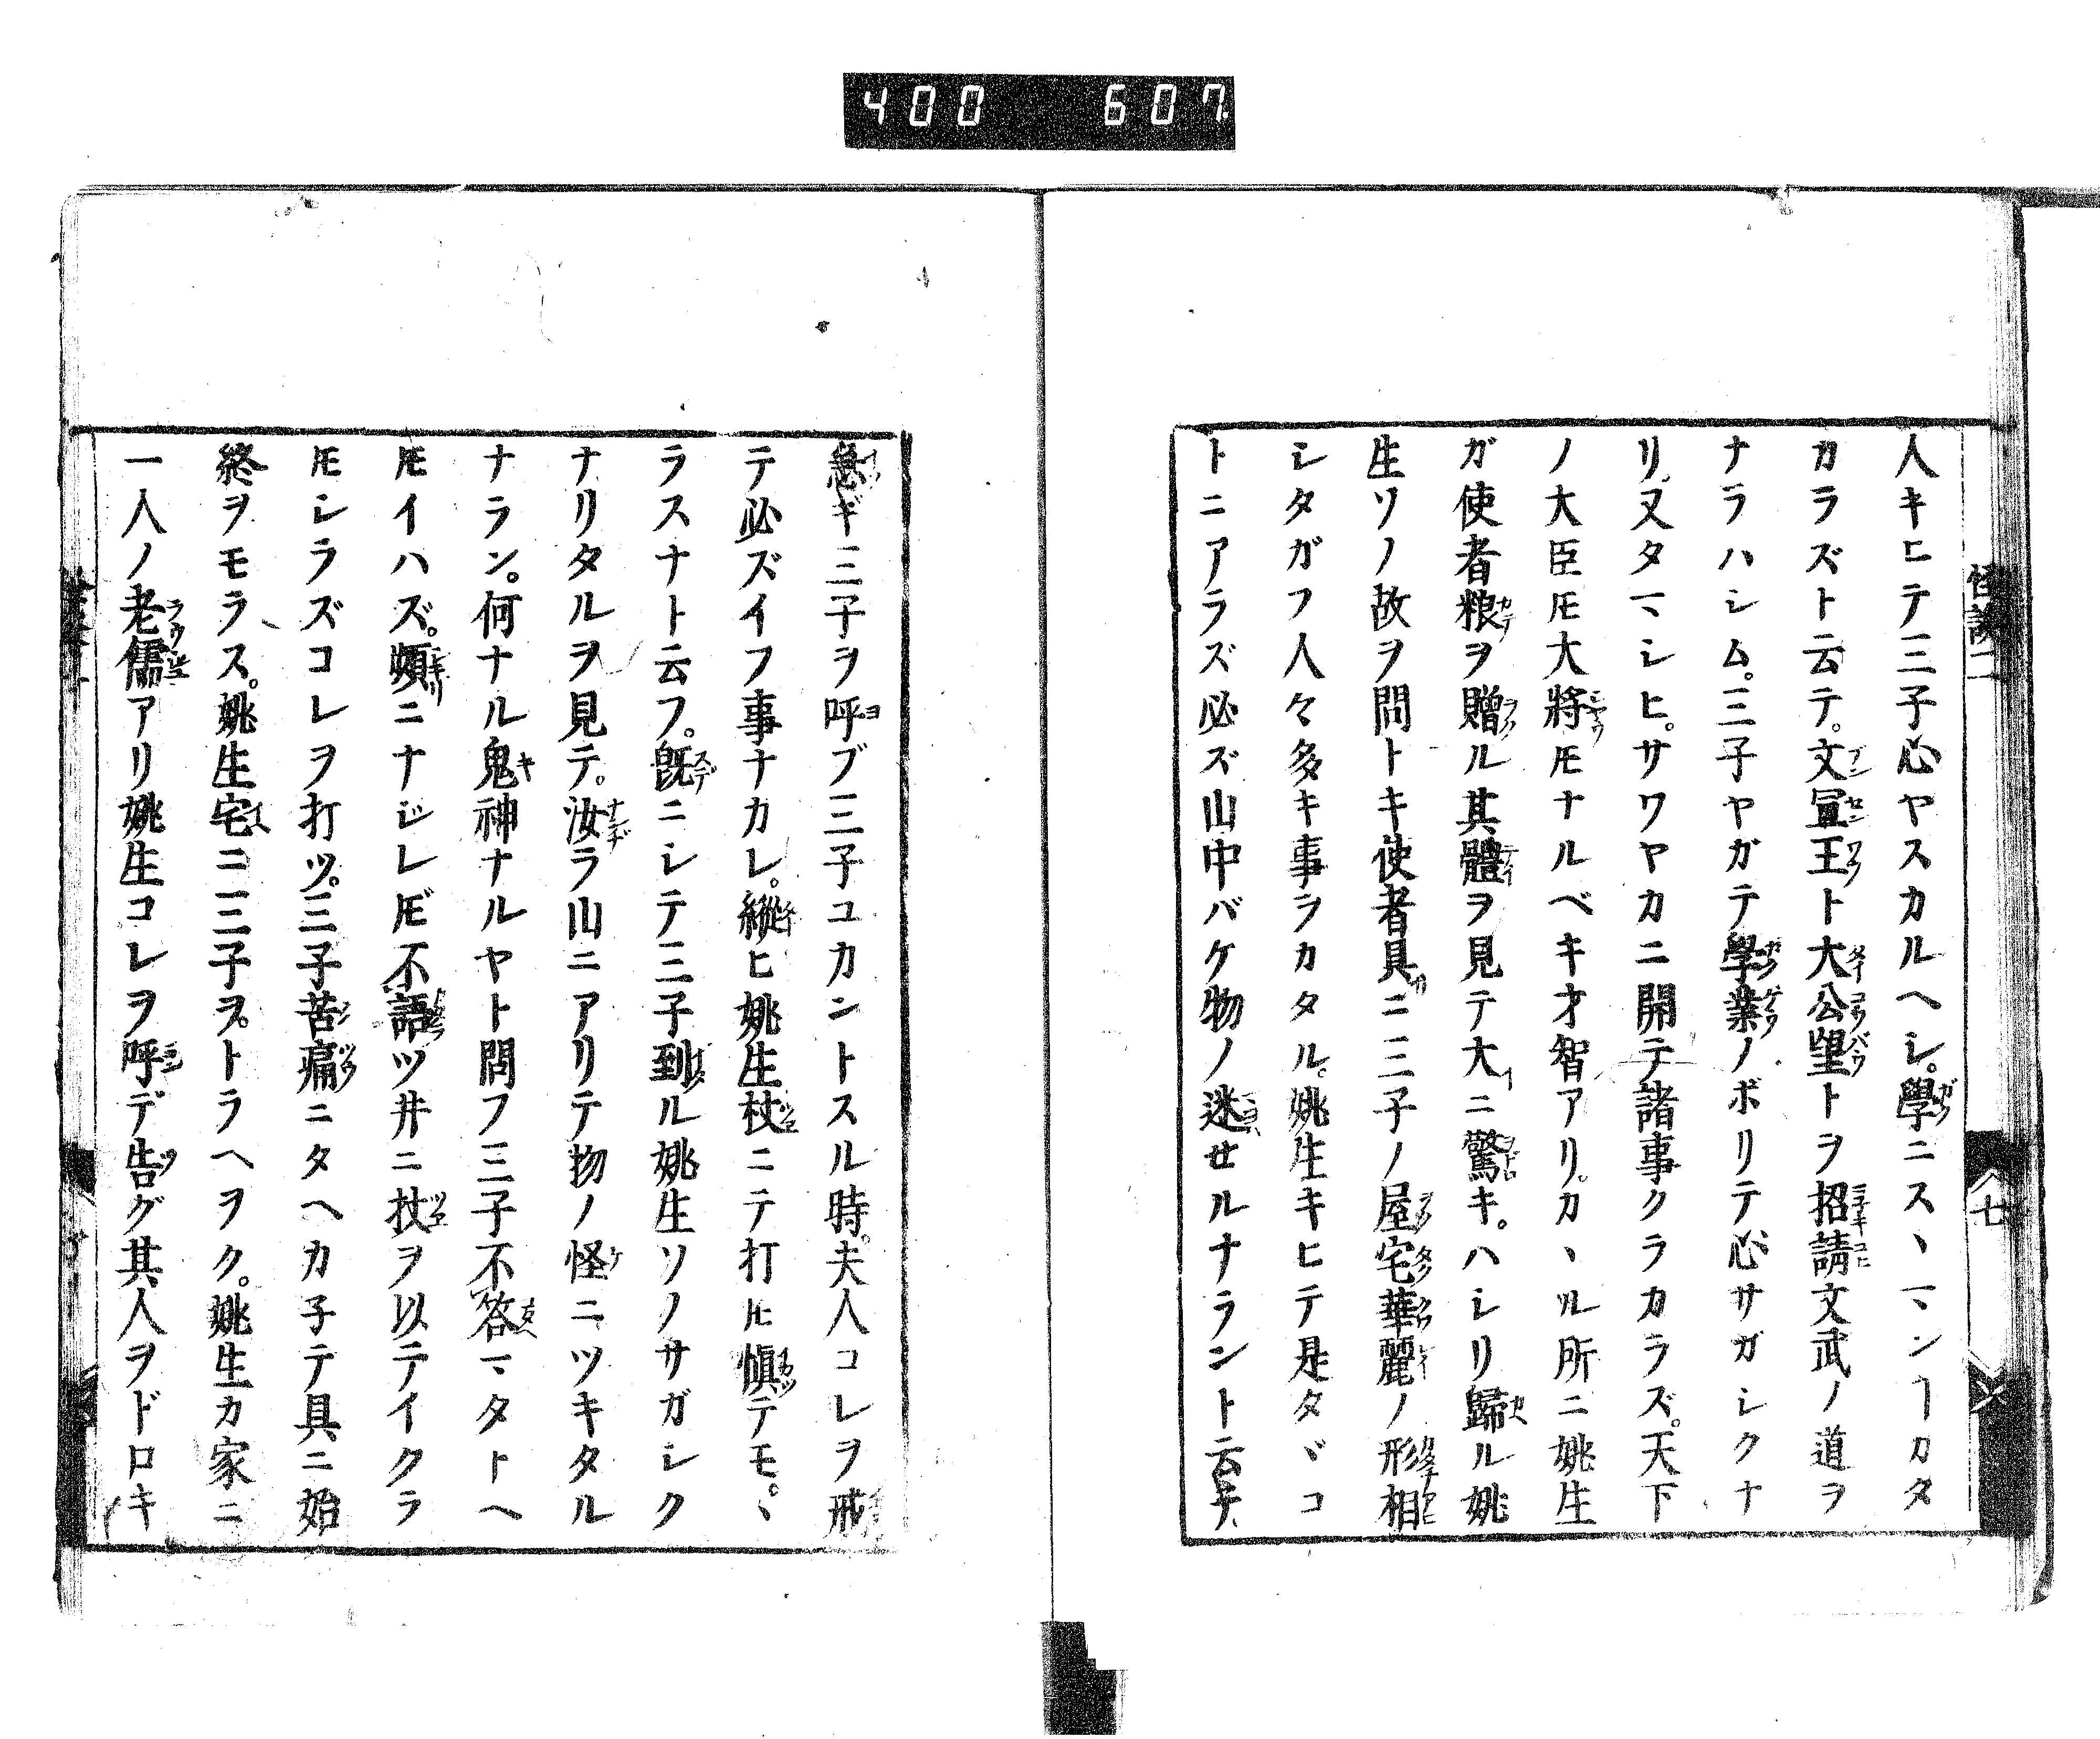 400 607.
怪談二
七
人キヒテ三子心ヤスカルヘシ。學ニスヽマンヿカタ
カラズト云テ。文宣王ト大公望トヲ招請文武ノ道ヲ
ナラハシム。三子ヤガテ學業ノボリテ心サガシクナ
リ。又タマシヒ。サワヤカニ開テ諸事クラカラズ。天下
ノ大臣𪜈大將𪜈ナルベキオ智アリ。カヽル所ニ姚生
ガ使者粮ヲ贈ル其體ヲ見テ大ニ驚キ。ハシリ歸ル姚
生ソノ故ヲ問トキ使者具ニ三子ノ屋宅華麗ノ形相
シタガフ人々多キ事ヲカタル。姚生キヒテ是タヾコ
トニアラズ必ズ山中バケ物ノ迷せルナラント云テ
急ギ三子ヲ呼ブ三子ユカントスル時。夫人コレヲ戒
テ必ズイフ事ナカレ。縱ヒ姚生杖ニテ打𪜈愼テモ。ヽ
ラスナト云フ。既ニシテ三子到ル姚生ソノサガシク
ナリタルヲ見テ。汝ラ山ニアリテ物ノ怪ニツキタル
ナラン。何ナル鬼神ナルヤト問フ三子不答マタトヘ
𪜈イハズ。頻ニナジレ𪜈不語ツ井ニ杖ヲ以テイクラ
𪜈シラズコレヲ打ッ。三子苦痛ニタヘカ子テ具ニ始
終ヲモラス。姚生宅ニ三子ヲ。トラヘヲク。姚生カ家ニ
一人ノ老儒アリ姚生コレヲ呼デ告グ其人ヲドロキ